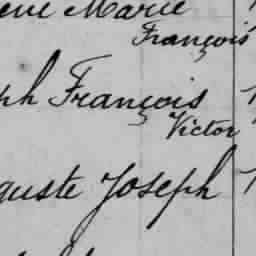 Marie
François
ph François
Victor
guste Joseph